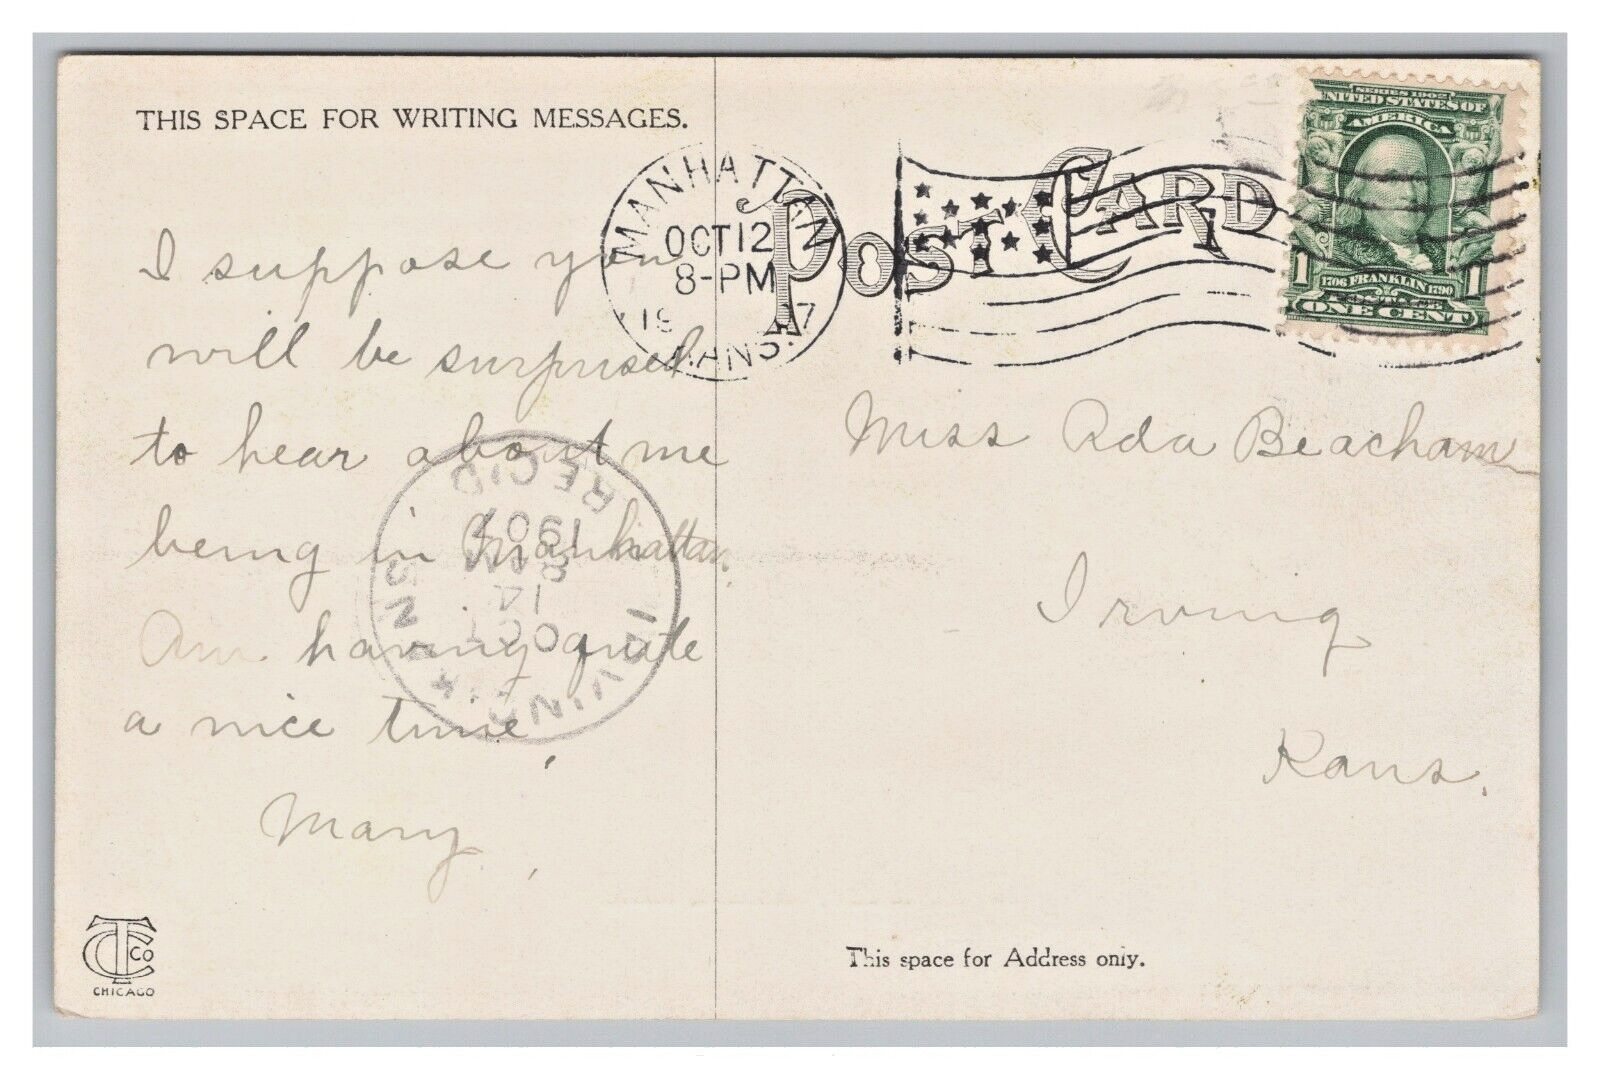 THIS SPACE FOR WRITING MESSAGES.
POST CARD
MANHATTAN
OCT 12
8-PM
19 7
KANS.
8
SERIES 1902
UNITED STATES OF
AMERICA
1706 FRANKLIN 1790
POSTAGE
1 1
ONE CENT
I suppose you
will be surprised
to hear about me
being in Manhattan.
Am having quite
a nice time,
Mary,
Miss Ada Beacham
Irving
Kans.
IRVING KANS
OCT
14
8 PM
1907
REC'D
TC Co
CHICAGO
This space for Address only.